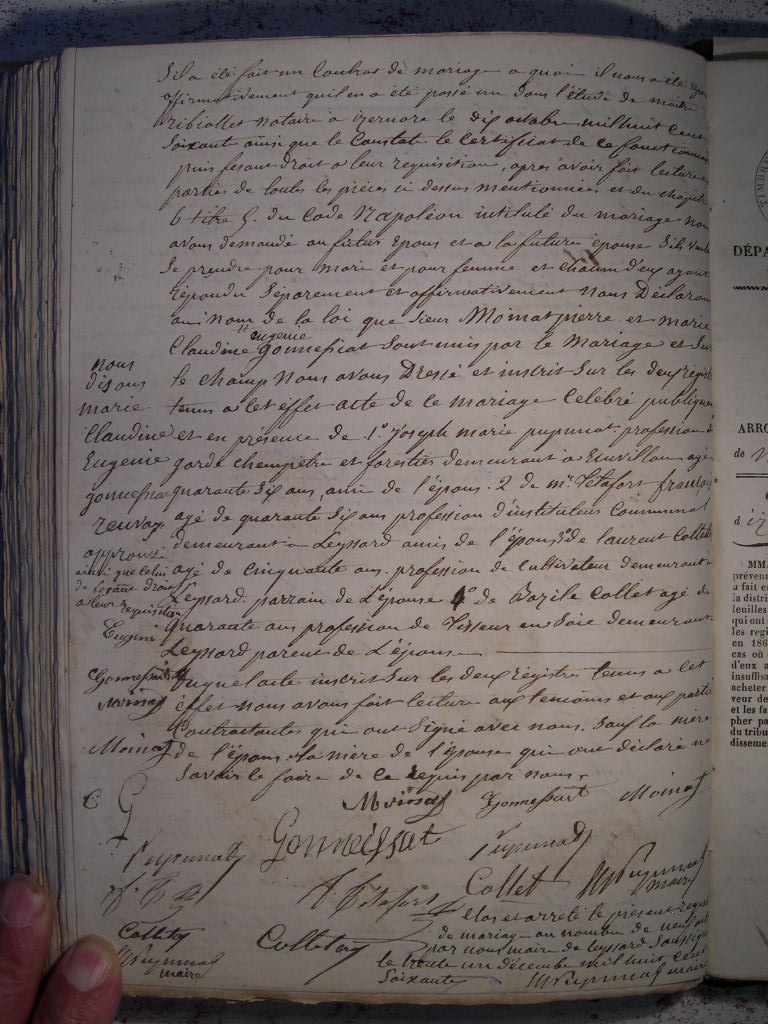 S'il a été fait un Contras de mariage a quoi il nous a été
affirmativement quil en a été passé un dans l'étude de maitre
ribiollet notaire a izernore le dix octobre mil huit Cent
Soixante ainsi que le Constate le Certificat de ce fonctionnaire
puis fesant droit a leur requisition, apres avoir fait lecture
parties de toutes les pièces ci dessus mentionnées et du chapitre
6 titre 5. du Code Napoléon intitulé du mariage nous
avons demandé au futur Epous et a la future epouse S'ils veulent
Se prendre pour mari et pour femme et chacun d'eux ayant
répondu Séparement et affirmativement Nous Déclarons
au nom de la loi que Sieur Moinat pierre et marie
eugenie
Claudine gonnessiat Sont unis par le Mariage et Sur
le champ Nous avons Dressé et inscrit Sur les deux registres
tenus a cet effet acte de ce mariage Celébré publiquement
et en présence de 1.° Joseph marie pupunat profession de
garde champêtre et forestier demeurant a agé
quarante Six ans, ami de l'épous. 2 de mr. Tétafort françois
agé de quarante Six ans profession d'instituteur Communal
demeurant a Leyssard amis de l'épous 3° de laurent Collet
agé de Cinquante ans. profession de Cultivateur demeurant a
Leyssard. parrain de L'épouse 4° de Bazile Collet agé de
Quarante ans profession de Tisseur en Soie demeurant
Leyssard parent de L'épouse
Duquel acte inscrit Sur les deux Régistres tenus a Cet
effet nous avons fait lecture aux temoins et aux parties
Contractantes qui ont Signé avec nous. Sauf la mère
de l'épous et la mère de l'épouse qui ont déclaré ne
Savoir le faire de Ce requis par nous.
nous
disons
marie
Claudine
Eugenie
gonnessiat
renvoy
approuvé
ainsi que celui
de fesant droit
a leur requisition
Eugéni
Gonnessiat
Moinat
Moinat
C G
Moinat Gonnessiat Moinat
Pupunat Gonneissiat Pupunat
Tétafort Collet Pupunat
maire
Collet
Collet
Pupunat
maire
Clos et arrêté le présent registre
de mariage au nombre de neuf
par nous maire de leyssard Soussigné
le trente un décembre mil huit Cent
Soixante Pupunat maire
TIMBRE
DÉPA
ARRO
de
MM.
prévenu
a fait
la distri
feuilles
qui ont
les regi
en 186
cas où
d'eux a
insuffisa
acheter
veur de
et les fa
pher pa
du tribu
dissemen